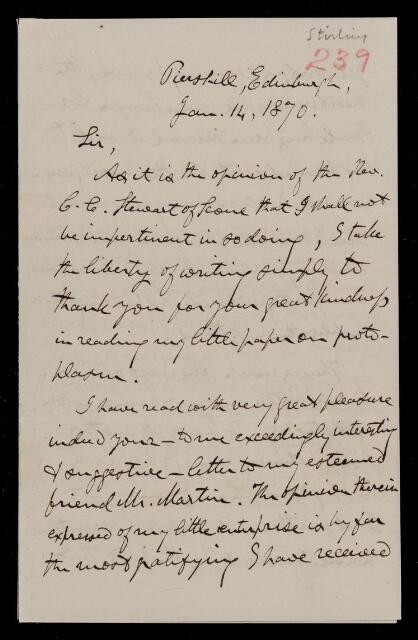 Stirling
239
Piershill, Edinburgh,
Jan. 14, 1870.
Sir,
As it is the opinion of the Rev.
C. C. Stewart of Scone that I shall not
be impertinent in so doing, I take
the liberty of writing simply to
thank you for your great kindness
in reading my little paper on proto-
plasm.
I have read with very great pleasure
indeed your – to me exceedingly interesting
& suggestive – letter to my esteemed
friend Mr. Martin. The opinion therein
expressed of my little enterprise is by far
the most gratifying I have received